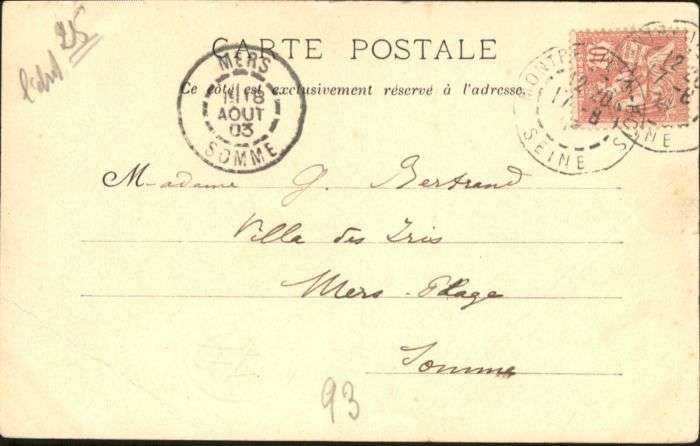 25
CARTE POSTALE
Ce côté est exclusivement réservé à l'adresse
MERS
18
AOUT
03
SOMME
MONTR
12
SEINE
10
Madame G. Bertrand
Villa des Iris
Mers-Plage
Somme
93